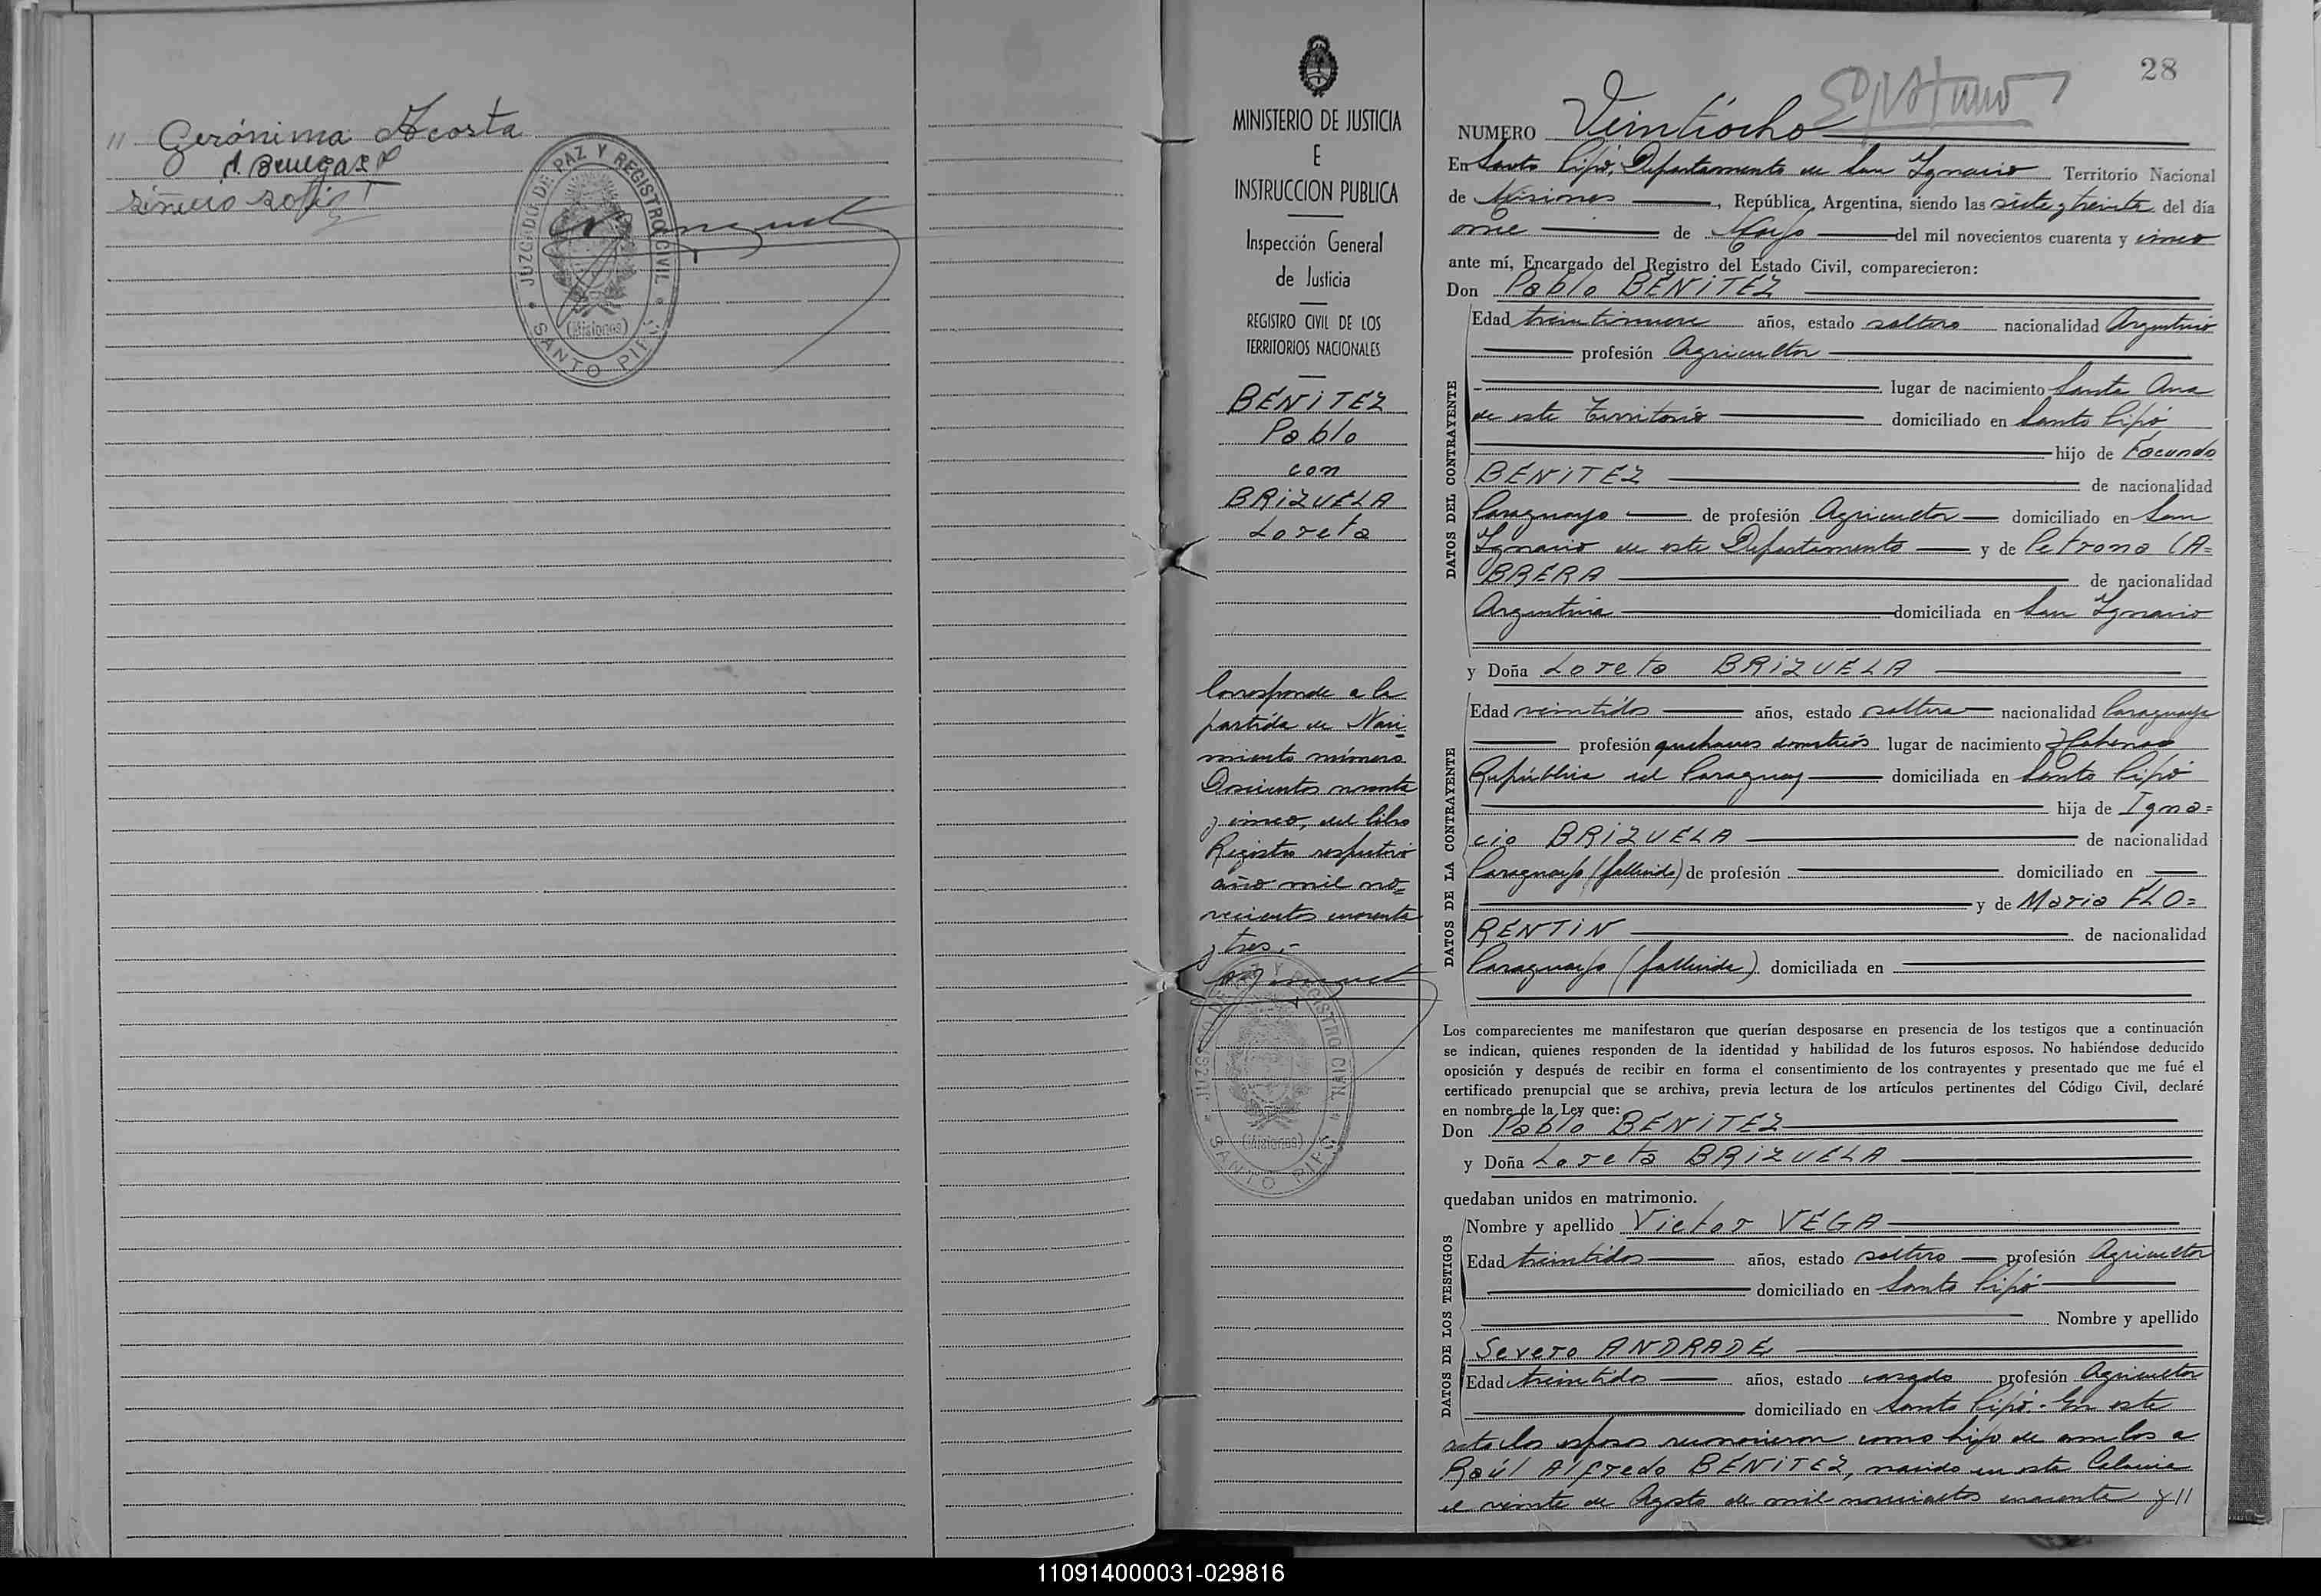 11 Gerónima Acosta
JUZGADO DE PAZ Y REGISTRO CIVIL
(Misiones)
SANTO PIPÓ
MINISTERIO DE JUSTICIA
E
INSTRUCCION PUBLICA
Inspección General
de Justicia
REGISTRO CIVIL DE LOS
TERRITORIOS NACIONALES
BENITEZ
Pablo
con
BRIZUELA
Loreta
Corresponde a la
partida de Naci-
miento número
Doscientos noventa
y cinco, del libro
Registro respectivo
año mil no-
vecientos cuarenta
y tres.-
JUZGADO DE PAZ Y REGISTRO CIVIL
(Misiones)
SANTO PIPÓ
28
NUMERO Veintiocho
En Santo Pipó, Departamento de San Ignacio Territorio Nacional
de Misiones, República Argentina, siendo las siete y treinta del día
once de Mayo del mil novecientos cuarenta y cinco
ante mí, Encargado del Registro del Estado Civil, comparecieron:
Don Pablo BENITEZ
DATOS DEL CONTRAYENTE
Edad treintinueve años, estado soltero nacionalidad Argentino
profesión Agricultor
lugar de nacimiento Santa Ana
de este Territorio domiciliado en Santo Pipó
hijo de Facundo
BENITEZ de nacionalidad
Paraguayo de profesión Agricultor domiciliado en San
Ignacio de este Departamento y de Petrona CA=
BRERA de nacionalidad
Argentina domiciliada en San Ignacio
y Doña Loreta BRIZUELA
DATOS DE LA CONTRAYENTE
Edad veintidos años, estado soltera nacionalidad Paraguaya
profesión quehaceres domésticos lugar de nacimiento
República del Paraguay domiciliada en Santo Pipó
hija de Igna=
cio BRIZUELA de nacionalidad
Paraguayo (fallecido) de profesión domiciliado en
y de Maria FLO=
RENTIN de nacionalidad
Paraguaya (fallecida) domiciliada en
Los comparecientes me manifestaron que querían desposarse en presencia de los testigos que a continuación
se indican, quienes responden de la identidad y habilidad de los futuros esposos. No habiéndose deducido
oposición y después de recibir en forma el consentimiento de los contrayentes y presentado que me fué el
certificado prenupcial que se archiva, previa lectura de los artículos pertinentes del Código Civil, declaré
en nombre de la Ley que:
Don Pablo BENITEZ
y Doña Loreta BRIZUELA
quedaban unidos en matrimonio.
DATOS DE LOS TESTIGOS
Nombre y apellido Victor VEGA
Edad treintidos años, estado soltero profesión Agricultor
domiciliado en Santo Pipó
Nombre y apellido
Severo ANDRADE
Edad treintidos años, estado casado profesión Agricultor
domiciliado en Santo Pipó.- En este
acto los esposos reconocieron como hijo de ambos a
Raúl Alfredo BENITEZ, nacido en esta Colonia
el veinte de Agosto de mil novecientos cuarenta y 11
110914000031-029816